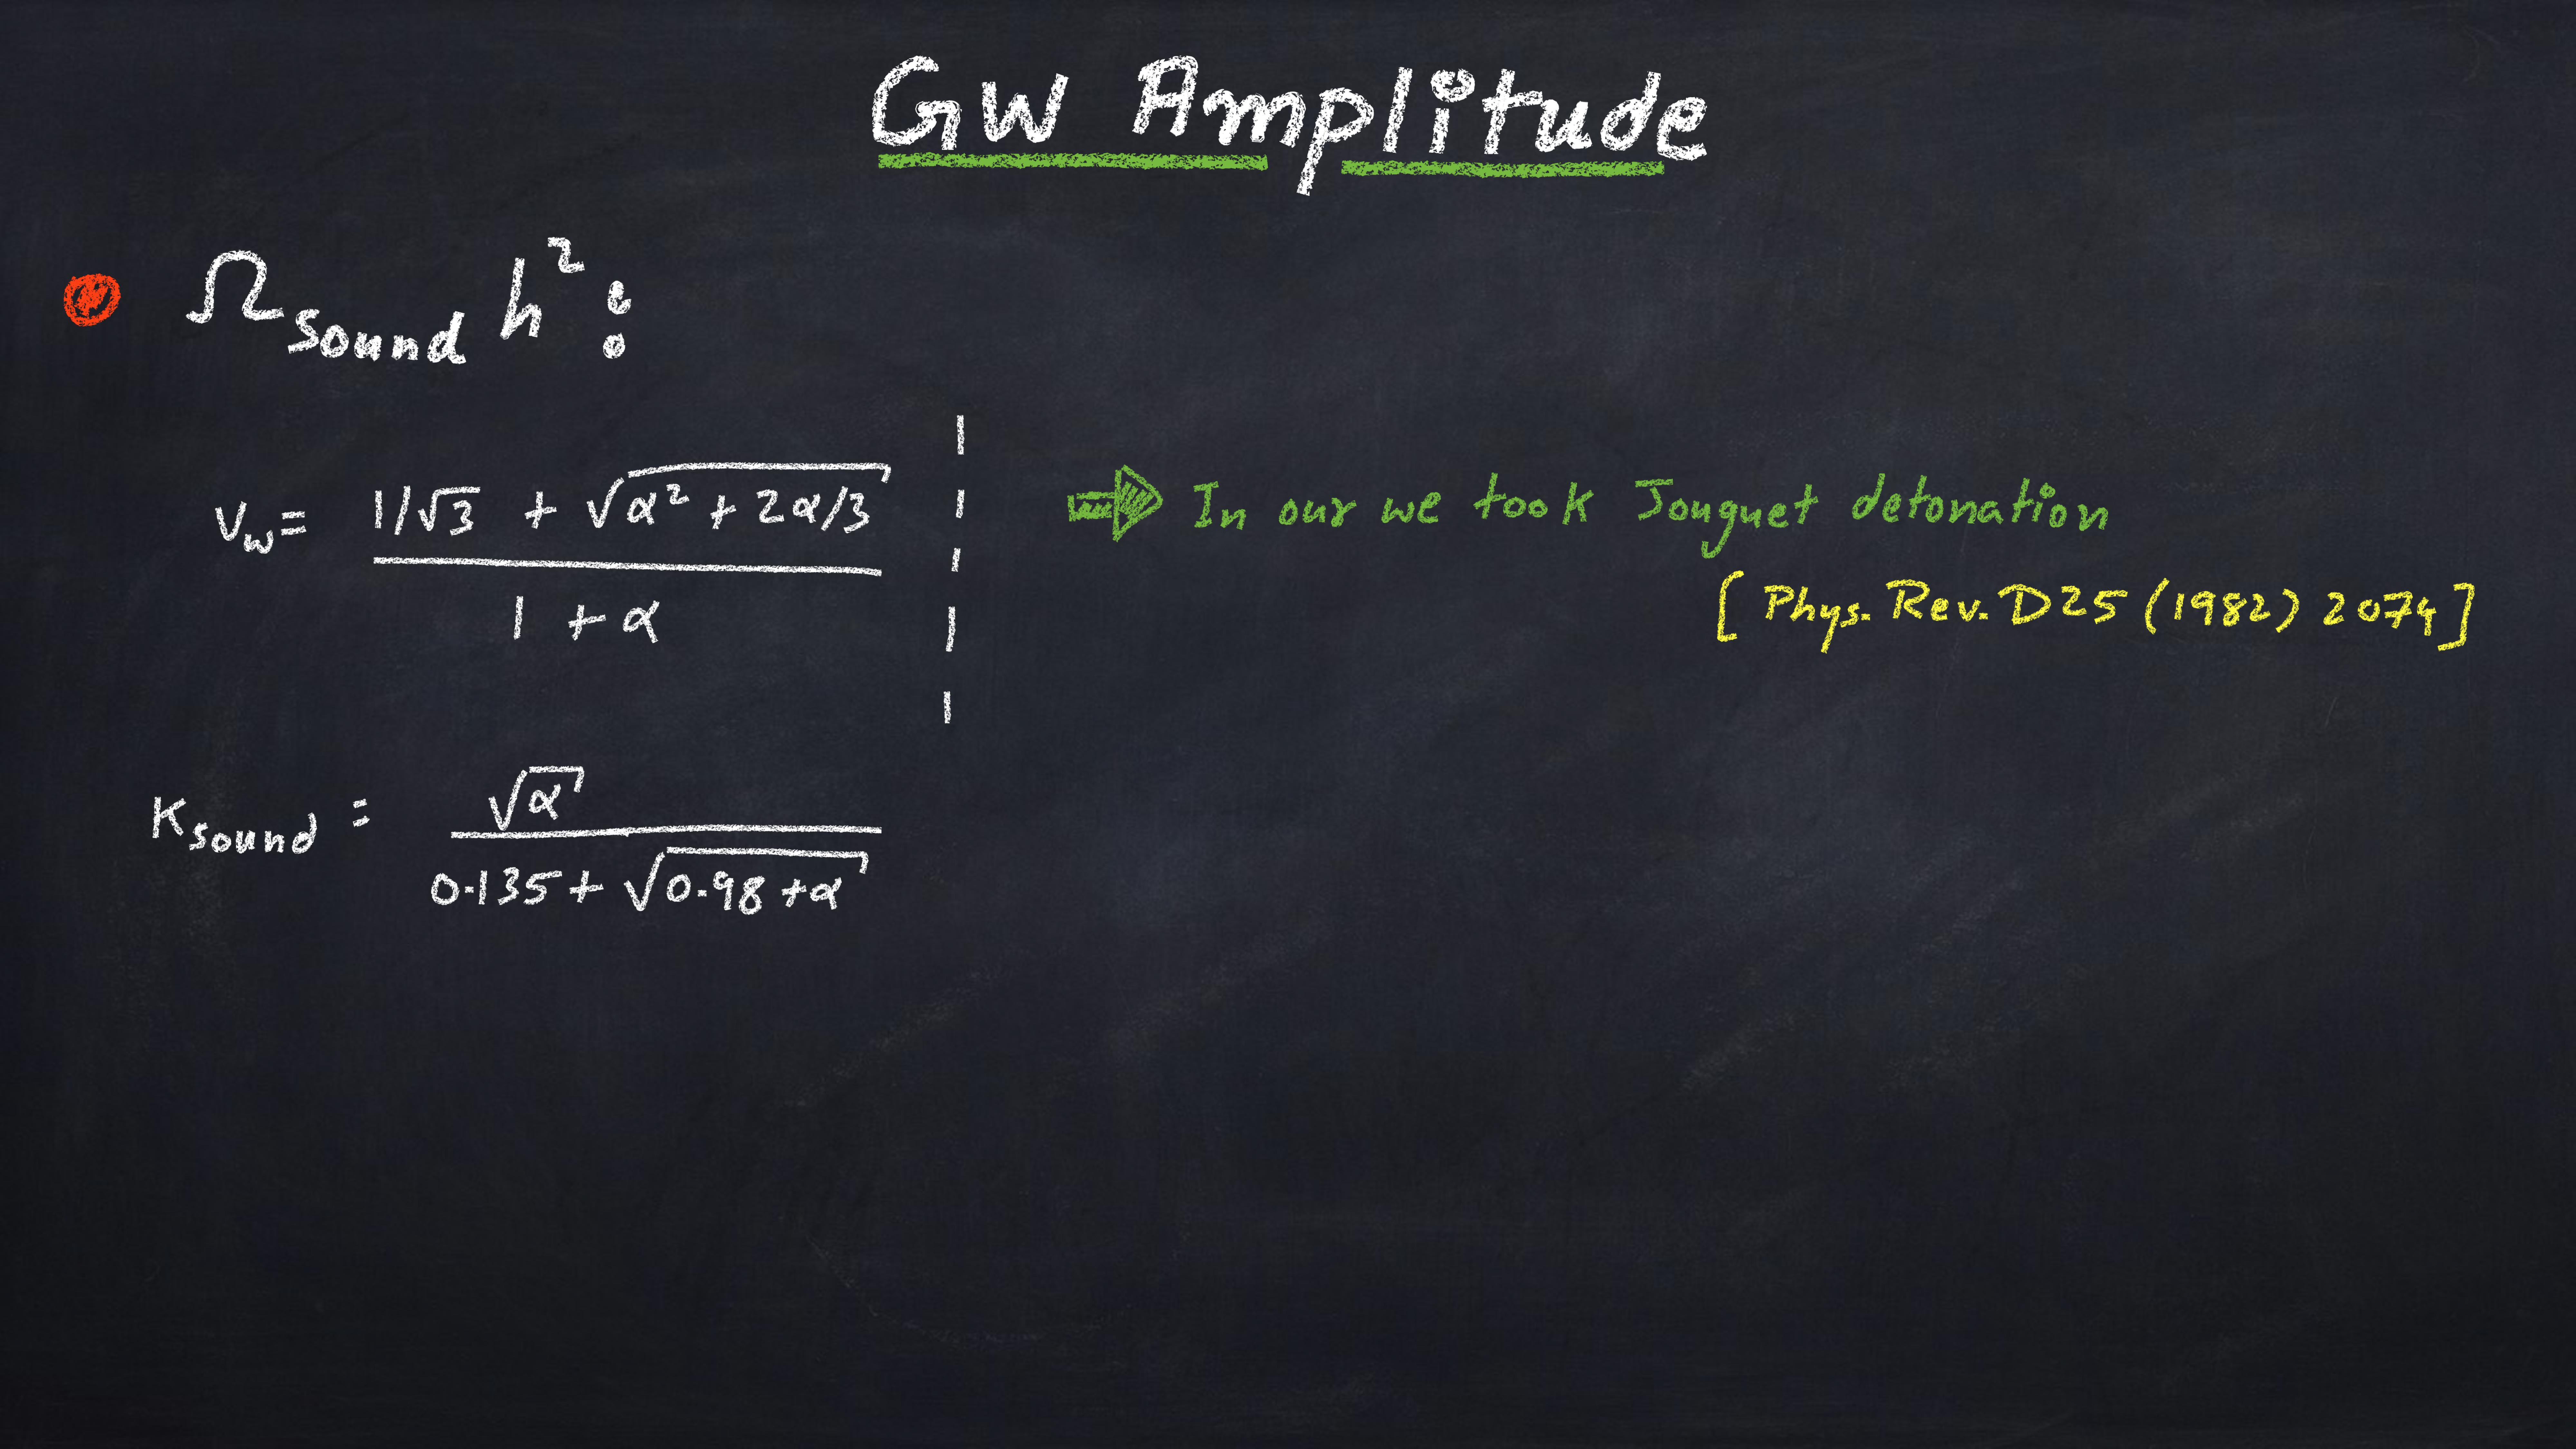 GW Amplitude
Ω_sound h² :
v_w = (1/√3 + √(α² + 2α/3)) / (1 + α)
⇒ In our we took Jouguet detonation
[Phys. Rev. D25 (1982) 2074]
κ_sound = √α / (0.135 + √(0.98 + α))